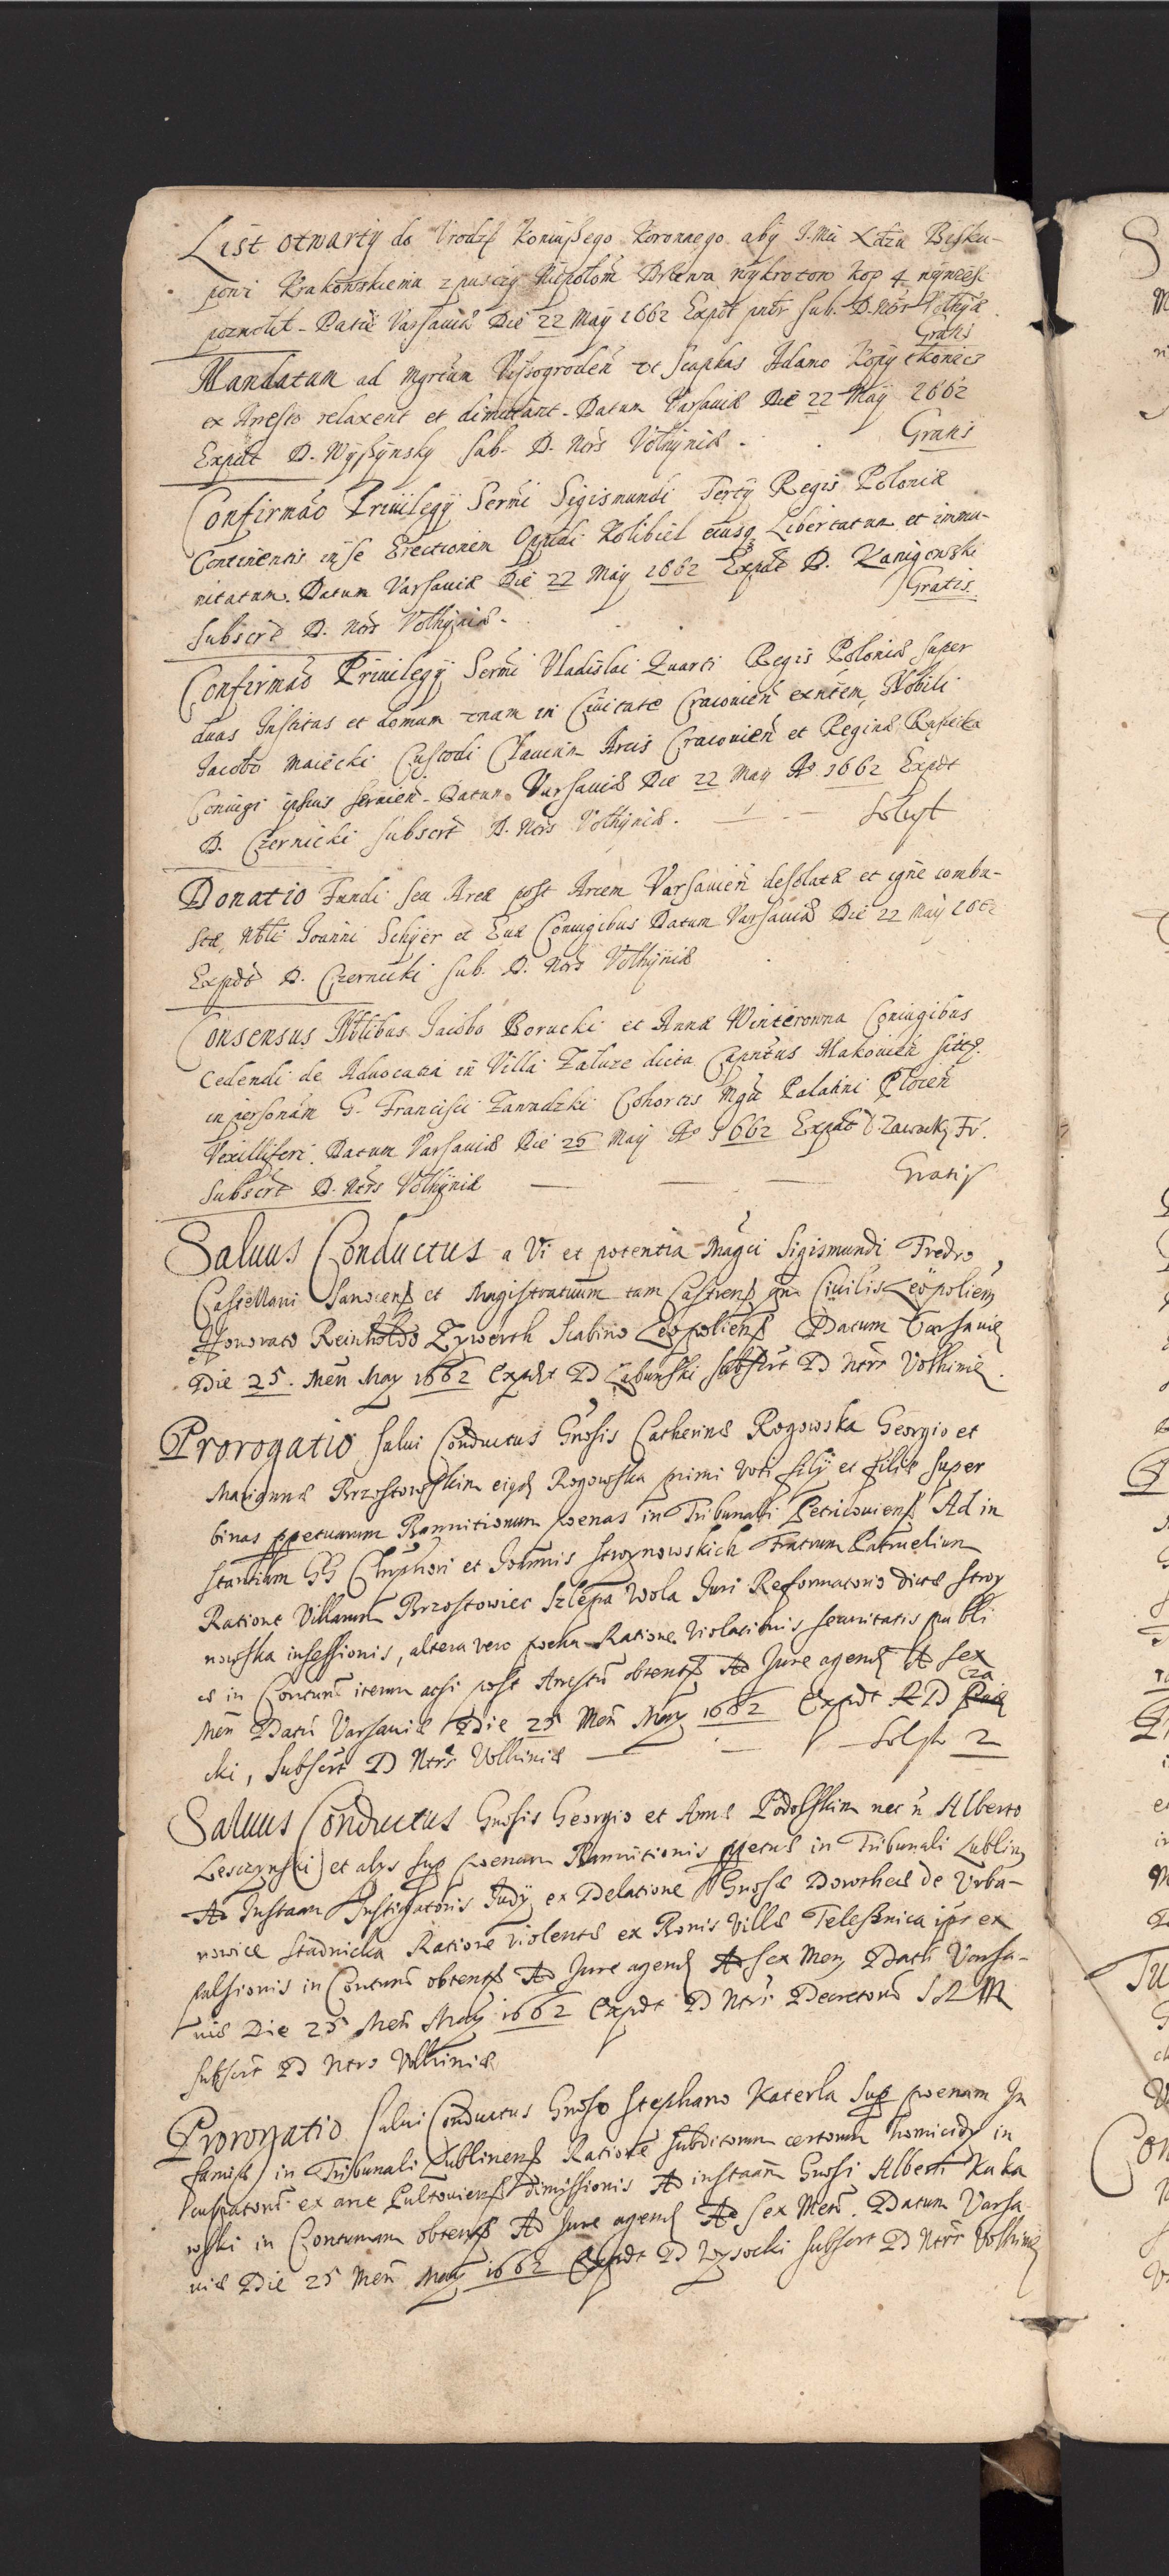 List otwarty do Urodz Koniuszego Koronnego aby J. Mci Xdzu Bisku-
powi Krakowskiemu z puszczy Niepołom Drzewa kop 4
Datū Varsaviæ Die 22 Maÿ 1662 Expdt sub. D. Ntrs Volhyæ
Gratis
Mandatum ad Mgrtum Vissogrodeñ vt Scaphas Adamo
ex Aresto relaxent et dimittant. Datum Varsaviæ Die 22 Maÿ 1662
Expdt D. Wyszynsky Sub. D. Ntrs Volhyniæ.
Gratis
Confirmao Priuilegÿ Sermi Sigismundi Tertÿ Regis Poloniæ
Continentis in se Erectionem Oppidi Kolibiel eiusq Libertatum et immu-
nitatum. Datum Varsaviæ Die 22 Maÿ 1662 Expdt D. Kanigowski
Gratis.
Subscrt D. Ntrs Volhyniæ.
Confirmao Priuilegÿ Sermi Vladislai Quarti Regis Poloniæ super
duas Institas et domum vnam in Ciuitate Cracovieñ exñtem, Nobili
Jacobo Maiecki Custodi Clauium Arcis Cracovieñ et Reginæ
Coniugi ipsius seruieñ. Datum Varsaviæ Die 22 Maÿ Ao 1662 Expdt
D. Czernicki subscrt D. Ntrs Volhyniæ.
Donatio Fundi seu Areæ post Arcem Varsavieñ desolatæ et igne combu-
stæ, Nbli Joanni Schyer et Euæ Coniugibus Datum Varsaviæ Die 22 Maÿ 1662
Expdt D. Czernicki Sub. D. Ntrs Volhyniæ
Consensus Nblibus Jacobo Borucki et Annæ Winterowna Coniugibus
Cedendi de Aduocatia in Villa Zaluze dicta Capntus Makovieñ
in personam G. Francisci Zawadzki Cohortis Mgci Palatini Ploceñ
Vexilliferi. Datum Varsaviæ Die 25 Maÿ Ao 1662 Expdt D. Zawadz
Subscrt D. Ntrs Volhyniæ
Gratis
Saluus Conductus a Vi et potentia Magci Sigismundi Fredro,
Castellani Sanocens et Magistratuum tam Castrens qm Ciuilis Leopoliens
Honorato Reinholdo Zywerth Scabino Leopoliens Datum Varsauiæ
Die 25. Men May 1662 Expdt D Labunski subscrt D Ntrs Volhiniæ.
Prorogatio salui Conductus Gnosis Catherinæ Rogowska Georgio et
Mariannæ Brzostowskim eiusd Rogowska primi voti filÿ et filiæ super
binas ppetuarum Bannitionum poenas in Tribunali Petricouiens Ad in
stantiam GG Chryphori et Joannis Stroynowskich Fratrum Patruelium
Ratione Villarum Brzostowiec Szlepa Wola Juri Reformatorio dictæ Stroy
nowska insessionis, altera vero poena Ratione violationis securitatis publi
cæ in Contum iterum acsi post Arestū obtent Ad Jure agend Ad sex
Men Datū Varsauiæ Die 25 Men May 1662 Expdt D
cki, Subscrt D Ntrs Volhiniæ 2
Saluus Conductus Gnosis Georgio et Annæ Podolskim nec n Alberto
Lesczynski et alys sup poenam Bannitionis ppetuæ in Tribunali Lublin
Ad Instaam Instigatoris Judÿ ex Delatione Gnosæ Dorotheæ de Vrba-
nowice Stadnicka Ratione violentæ ex Bonis Villæ Telesznica ipsr ex
pulsionis in Contum obtent Ad Jure agend Ad sex Men Datū Varsa-
uiæ Die 25 Men May 1662 Expdt D Ntrs Decretorū S R M
subscrt D Ntrs Volhiniæ
Prorogatio Salui Conductus Gnoso Stephano Katerla sup poenam In
famiæ in Tribunali Lublinens Ratione Subditorum certorum homicidÿ in
culpatorū ex arce Pultouiens dimissionis Ad instaam Gnosi Alberti Kuka
wski in Contumam obtent Ad Jure agend Ad sex Men. Datum Varsa
uiæ Die 25 Men May 1662 Expdt D Wysocki subscrt D Ntrs Volhiniæ